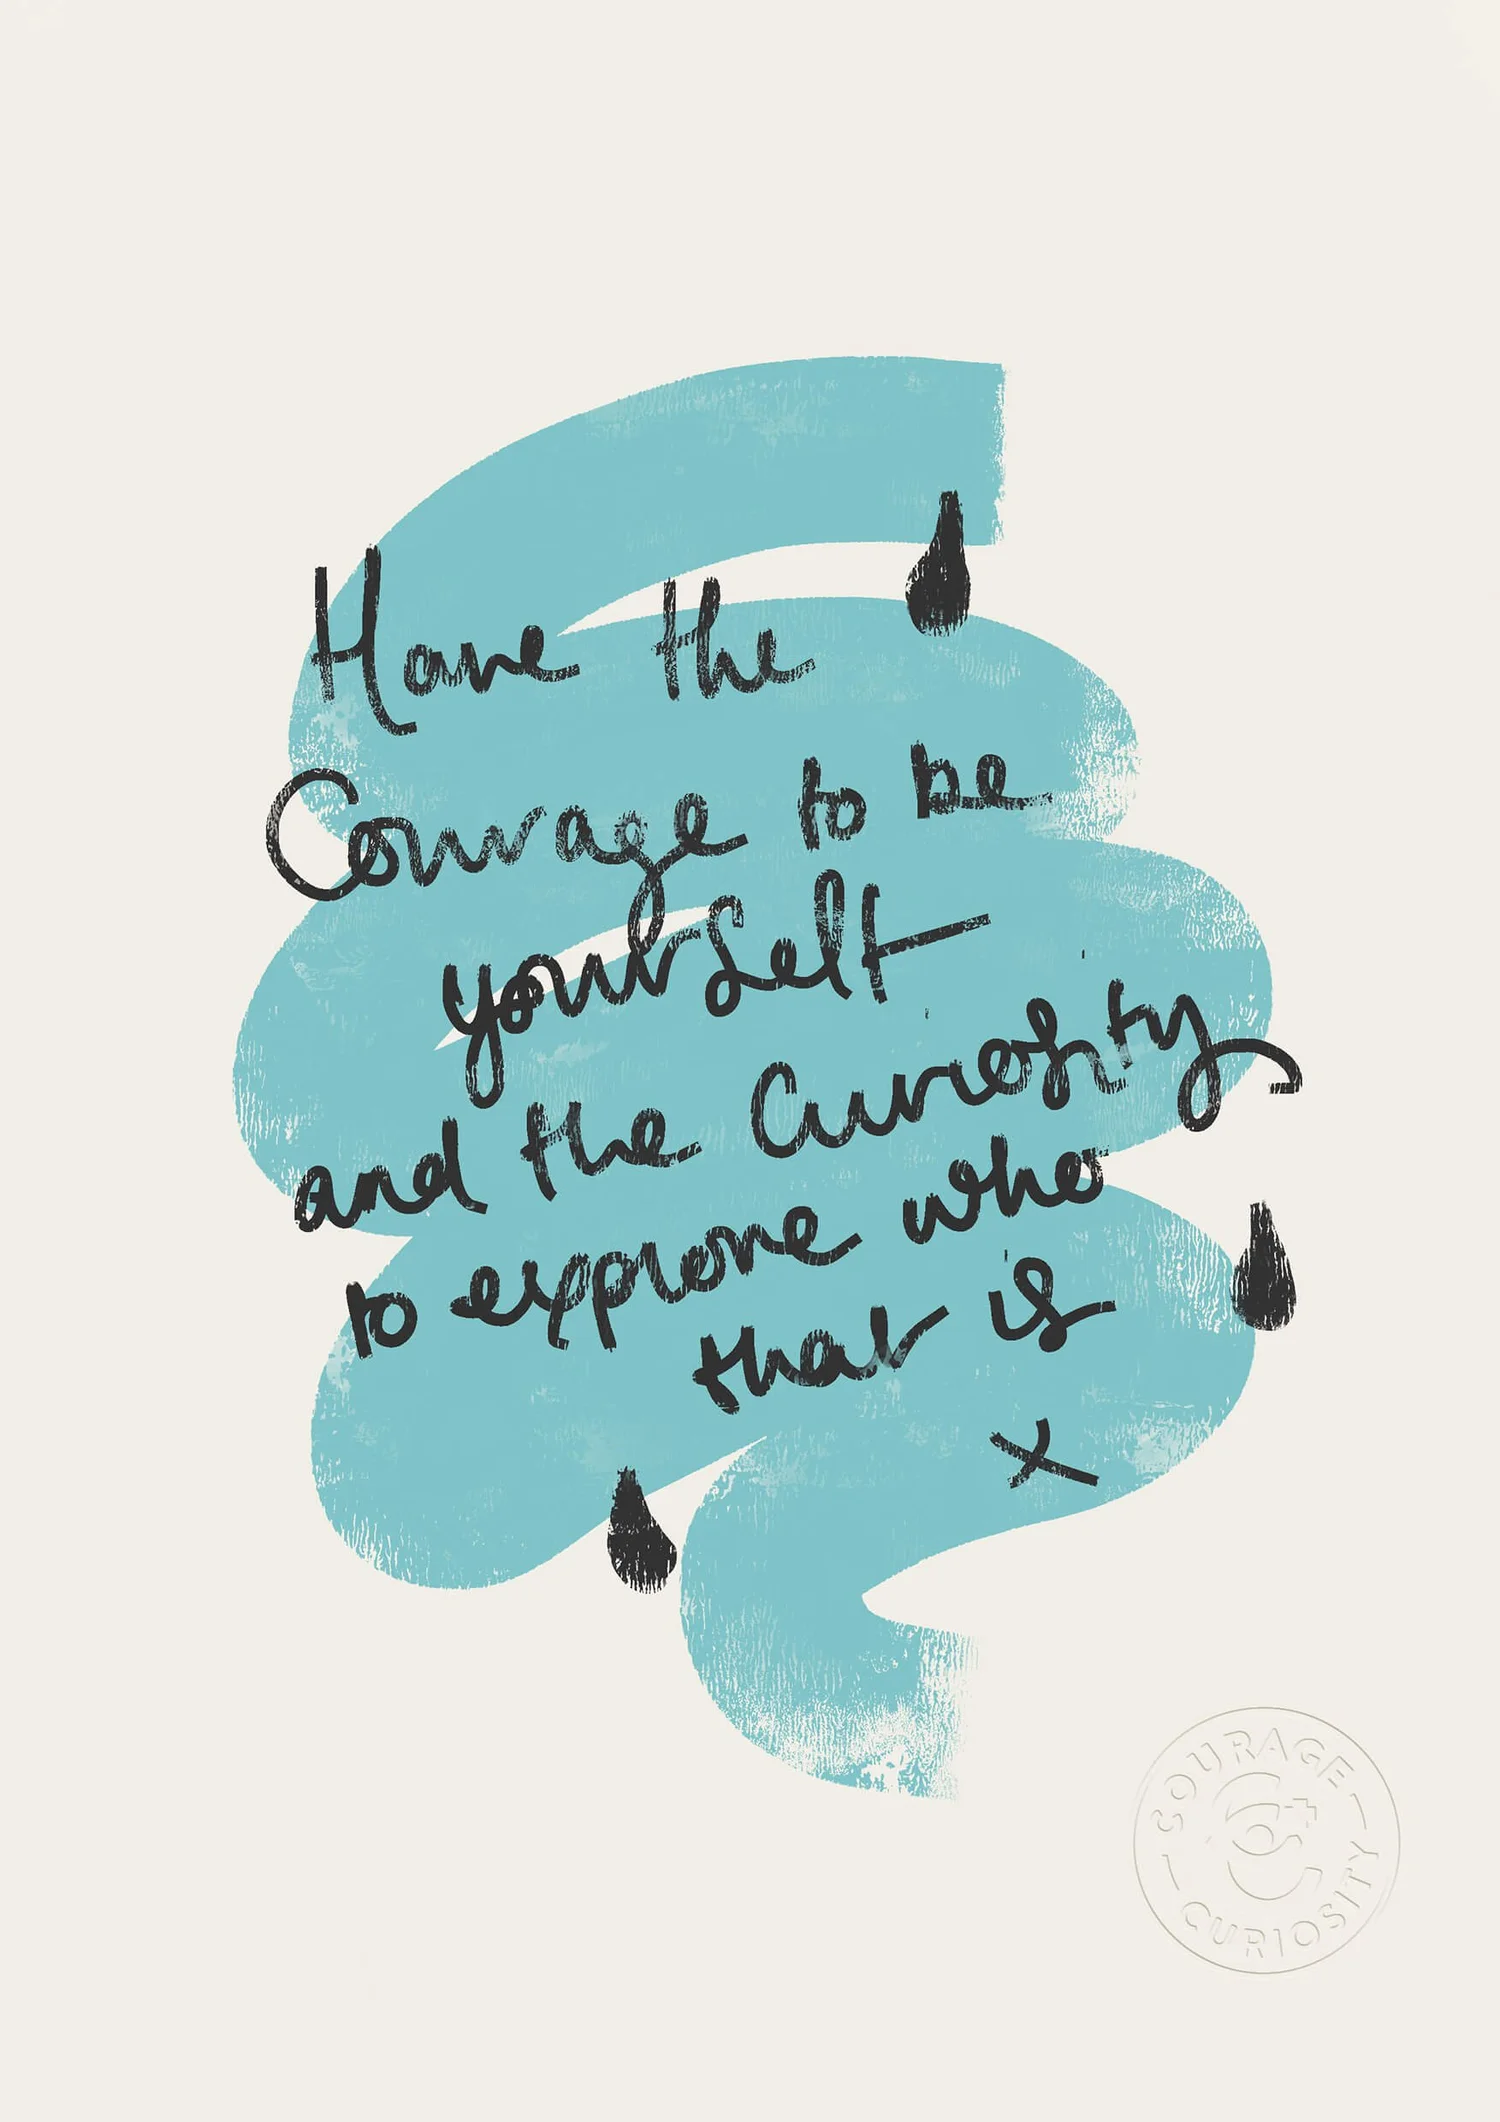 Have the
Courage to be
yourself
and the Curiosity
to explore who
that is
x
COURAGE
CURIOSITY